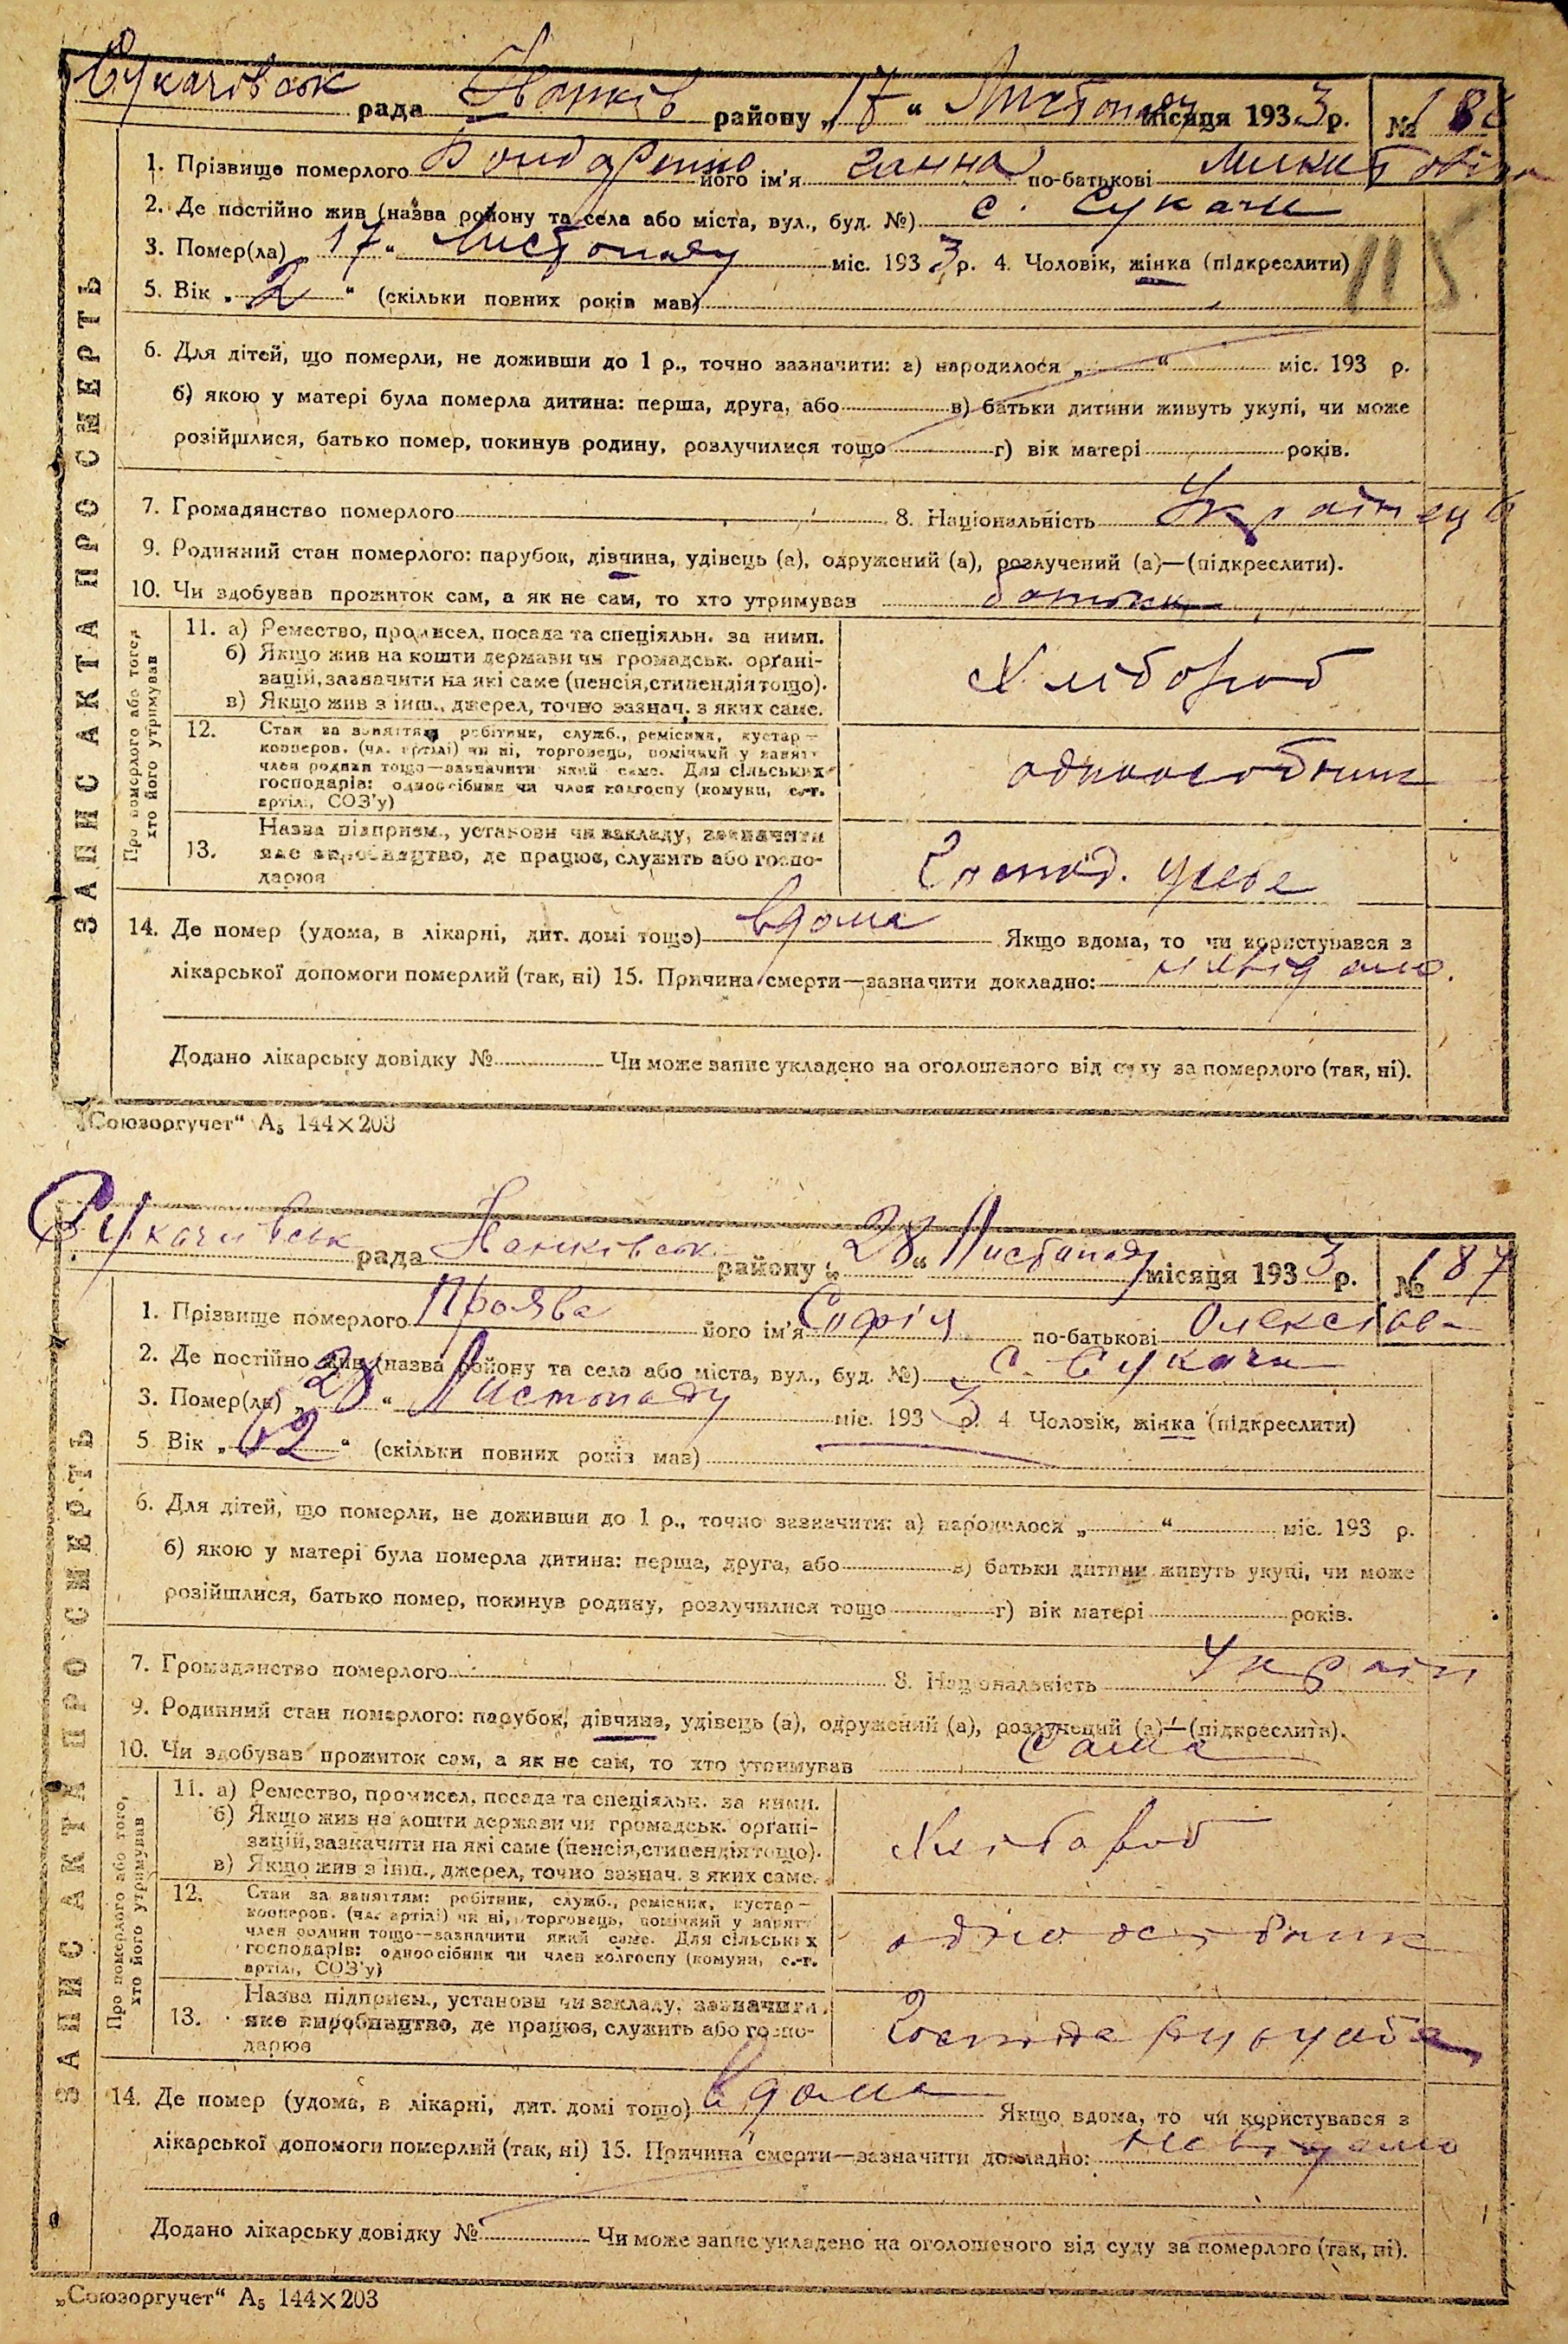 Сукачівськ рада Іванків району „17“ Листопаду місяця 1933 р. № 186
1. Прізвище померлого Бондаренко його ім'я Ганна по-батькові Микитовна
2. Де постійно жив (назва району та села або міста, вул., буд. №) с. Сукачи
3. Помер(ла) „17“ Листопаду міс. 1933 р. 4. Чоловік, жінка (підкреслити)
115
5. Вік „2“ (скільки повних років мав)
6. Для дітей, що померли, не доживши до 1 р., точно зазначити: а) народилося „ “ міс. 193 р.
б) якою у матері була померла дитина: перша, друга, або в) батьки дитини живуть укупі, чи може
розійшлися, батько помер, покинув родину, розлучилися тощо г) вік матері років.
7. Громадянство померлого 8. Національність Українець
9. Родинний стан померлого: парубок, дівчина, удівець (а), одружений (а), розлучений (а)—(підкреслити).
10. Чи здобував прожиток сам, а як не сам, то хто утримував батьки
ЗАПИС АКТА ПРО СМЕРТЬ
Про померлого або того, хто його утримував
11. а) Ремество, промисел, посада та спеціяльн. за ними.
б) Якщо жив на кошти держави чи громадськ. орґані-
зацій, зазначити на які саме (пенсія, стипендія тощо).
в) Якщо жив з інш., джерел, точно зазнач. з яких саме.
Хлібороб
12. Стан за заняттям: робітник, служб., ремісник, кустар—
кооперов. (чл. артілі) чи ні, торговець, помічний у занятт
член родини тощо—зазначити який саме. Для сільських
господарів: одноосібник чи член колгоспу (комуни, с.-г.
артілі, СОЗ'у)
одноосібник
13. Назва підприєм., установи чи закладу, зазначити
яке виробництво, де працює, служить або госпо-
дарює
Господ. у себе
14. Де помер (удома, в лікарні, дит. домі тощо) вдома Якщо вдома, то чи користувався з
лікарської допомоги померлий (так, ні) 15. Причина смерти—зазначити докладно: невідомо.
Додано лікарську довідку № Чи може запис укладено на оголошеного від суду за померлого (так, ні).
„Союзоргучет“ А₅ 144×203
Сукачівськ рада Іванківськ району „28“ Листопаду місяця 1933 р. № 187
1. Прізвище померлого Проява його ім'я Софія по-батькові Олексіов-
2. Де постійно жив (назва району та села або міста, вул., буд. №) с. Сукачи
3. Помер(ла) „28“ Листопаду міс. 1933 р. 4. Чоловік, жінка (підкреслити)
5. Вік „62“ (скільки повних років мав)
6. Для дітей, що померли, не доживши до 1 р., точно зазначити: а) народилося „ “ міс. 193 р.
б) якою у матері була померла дитина: перша, друга, або в) батьки дитини живуть укупі, чи може
розійшлися, батько помер, покинув родину, розлучилися тощо г) вік матері років.
7. Громадянство померлого 8. Національність Україн
9. Родинний стан померлого: парубок, дівчина, удівець (а), одружений (а), розлучений (а)—(підкреслити).
10. Чи здобував прожиток сам, а як не сам, то хто утримував сама
ЗАПИС АКТА ПРО СМЕРТЬ
Про померлого або того, хто його утримував
11. а) Ремество, промисел, посада та спеціяльн. за ними.
б) Якщо жив на кошти держави чи громадськ. орґані-
зацій, зазначити на які саме (пенсія, стипендія тощо).
в) Якщо жив з інш., джерел, точно зазнач. з яких саме.
Хлібороб
12. Стан за заняттям: робітник, служб., ремісник, кустар—
кооперов. (чл. артілі) чи ні, торговець, помічний у занятт
член родини тощо—зазначити який саме. Для сільських
господарів: одноосібник чи член колгоспу (комуни, с.-г.
артілі, СОЗ'у)
одноосібник
13. Назва підприєм., установи чи закладу, зазначити
яке виробництво, де працює, служить або госпо-
дарює
14. Де помер (удома, в лікарні, дит. домі тощо) вдома Якщо вдома, то чи користувався з
лікарської допомоги померлий (так, ні) 15. Причина смерти—зазначити докладно: невідомо
Додано лікарську довідку № Чи може запис укладено на оголошеного від суду за померлого (так, ні).
„Союзоргучет“ А₅ 144×203